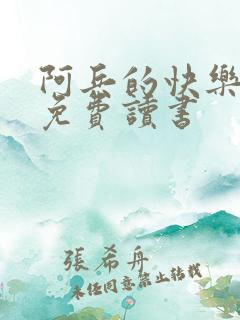 阿兵的快樂
免費讀書
張希舟
未任同意禁止转载